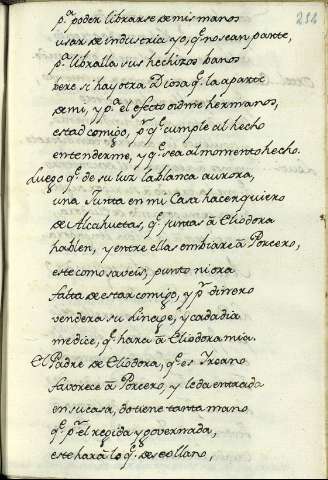 214
pª poder librarse de mis manos
usar de industria yo, q̃. no sean parte,
pª libralla sus hechizos banos
bere si hay otra Diosa q̃. la aparte
de mi, y pª el efecto oidme hermanos,
estad comigo, pr̃ q̃ cumple al hecho
entenderme, y q̃. sea al momento hecho.
Luego q̃. de su luz la blanca aurora,
una Junta en mi Casa hacer quiero
de Alcahuetas, q̃. juntas â Eliodora
hablen, y entre ellas embiare â Porcero,
este como saveis, punto ni ora
falta de estar comigo, y pr̃ dinero
vendera su linage, y cada dia
me dice, q̃. hara â Eliodora mia.
El Padre de Eliodora, q̃. es Ircano
favorece â Porcero, y le da entrada
en su casa, do tiene tanta mano
q̃. pr̃ el regida y governada,
este hará lo q̃. deseo llano,